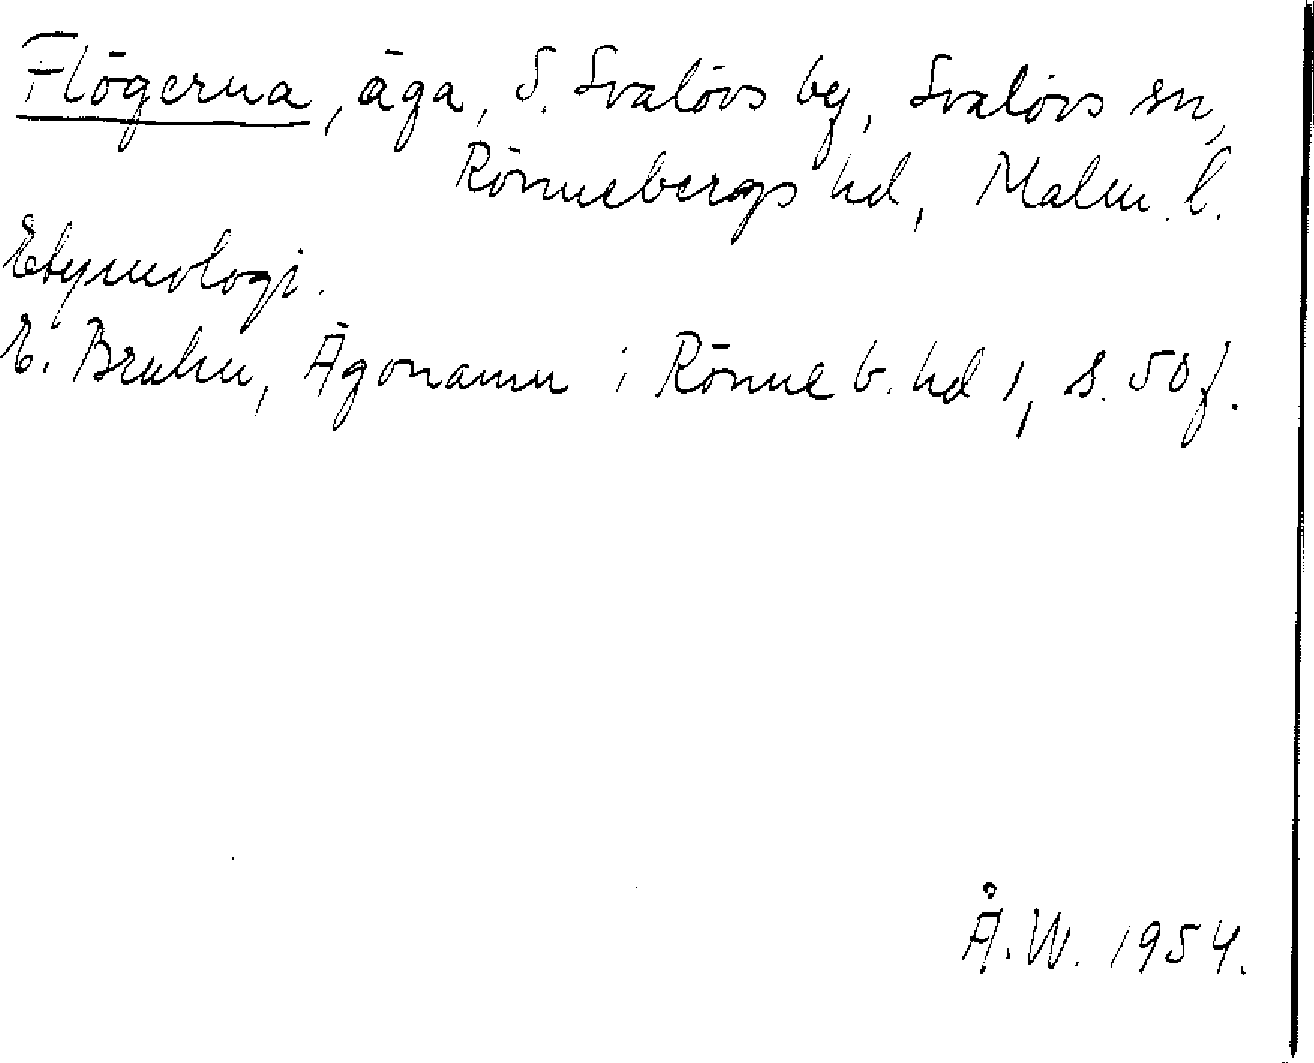 Flögerna, äga, S. Svalövs by, Svalövs sn,
Rönnebergs hd, Malm. l.
Etymologi.
E. Bruhn, Ägonamn i Rönneb. hd 1, s. 50 f.
Å.W. 1954.